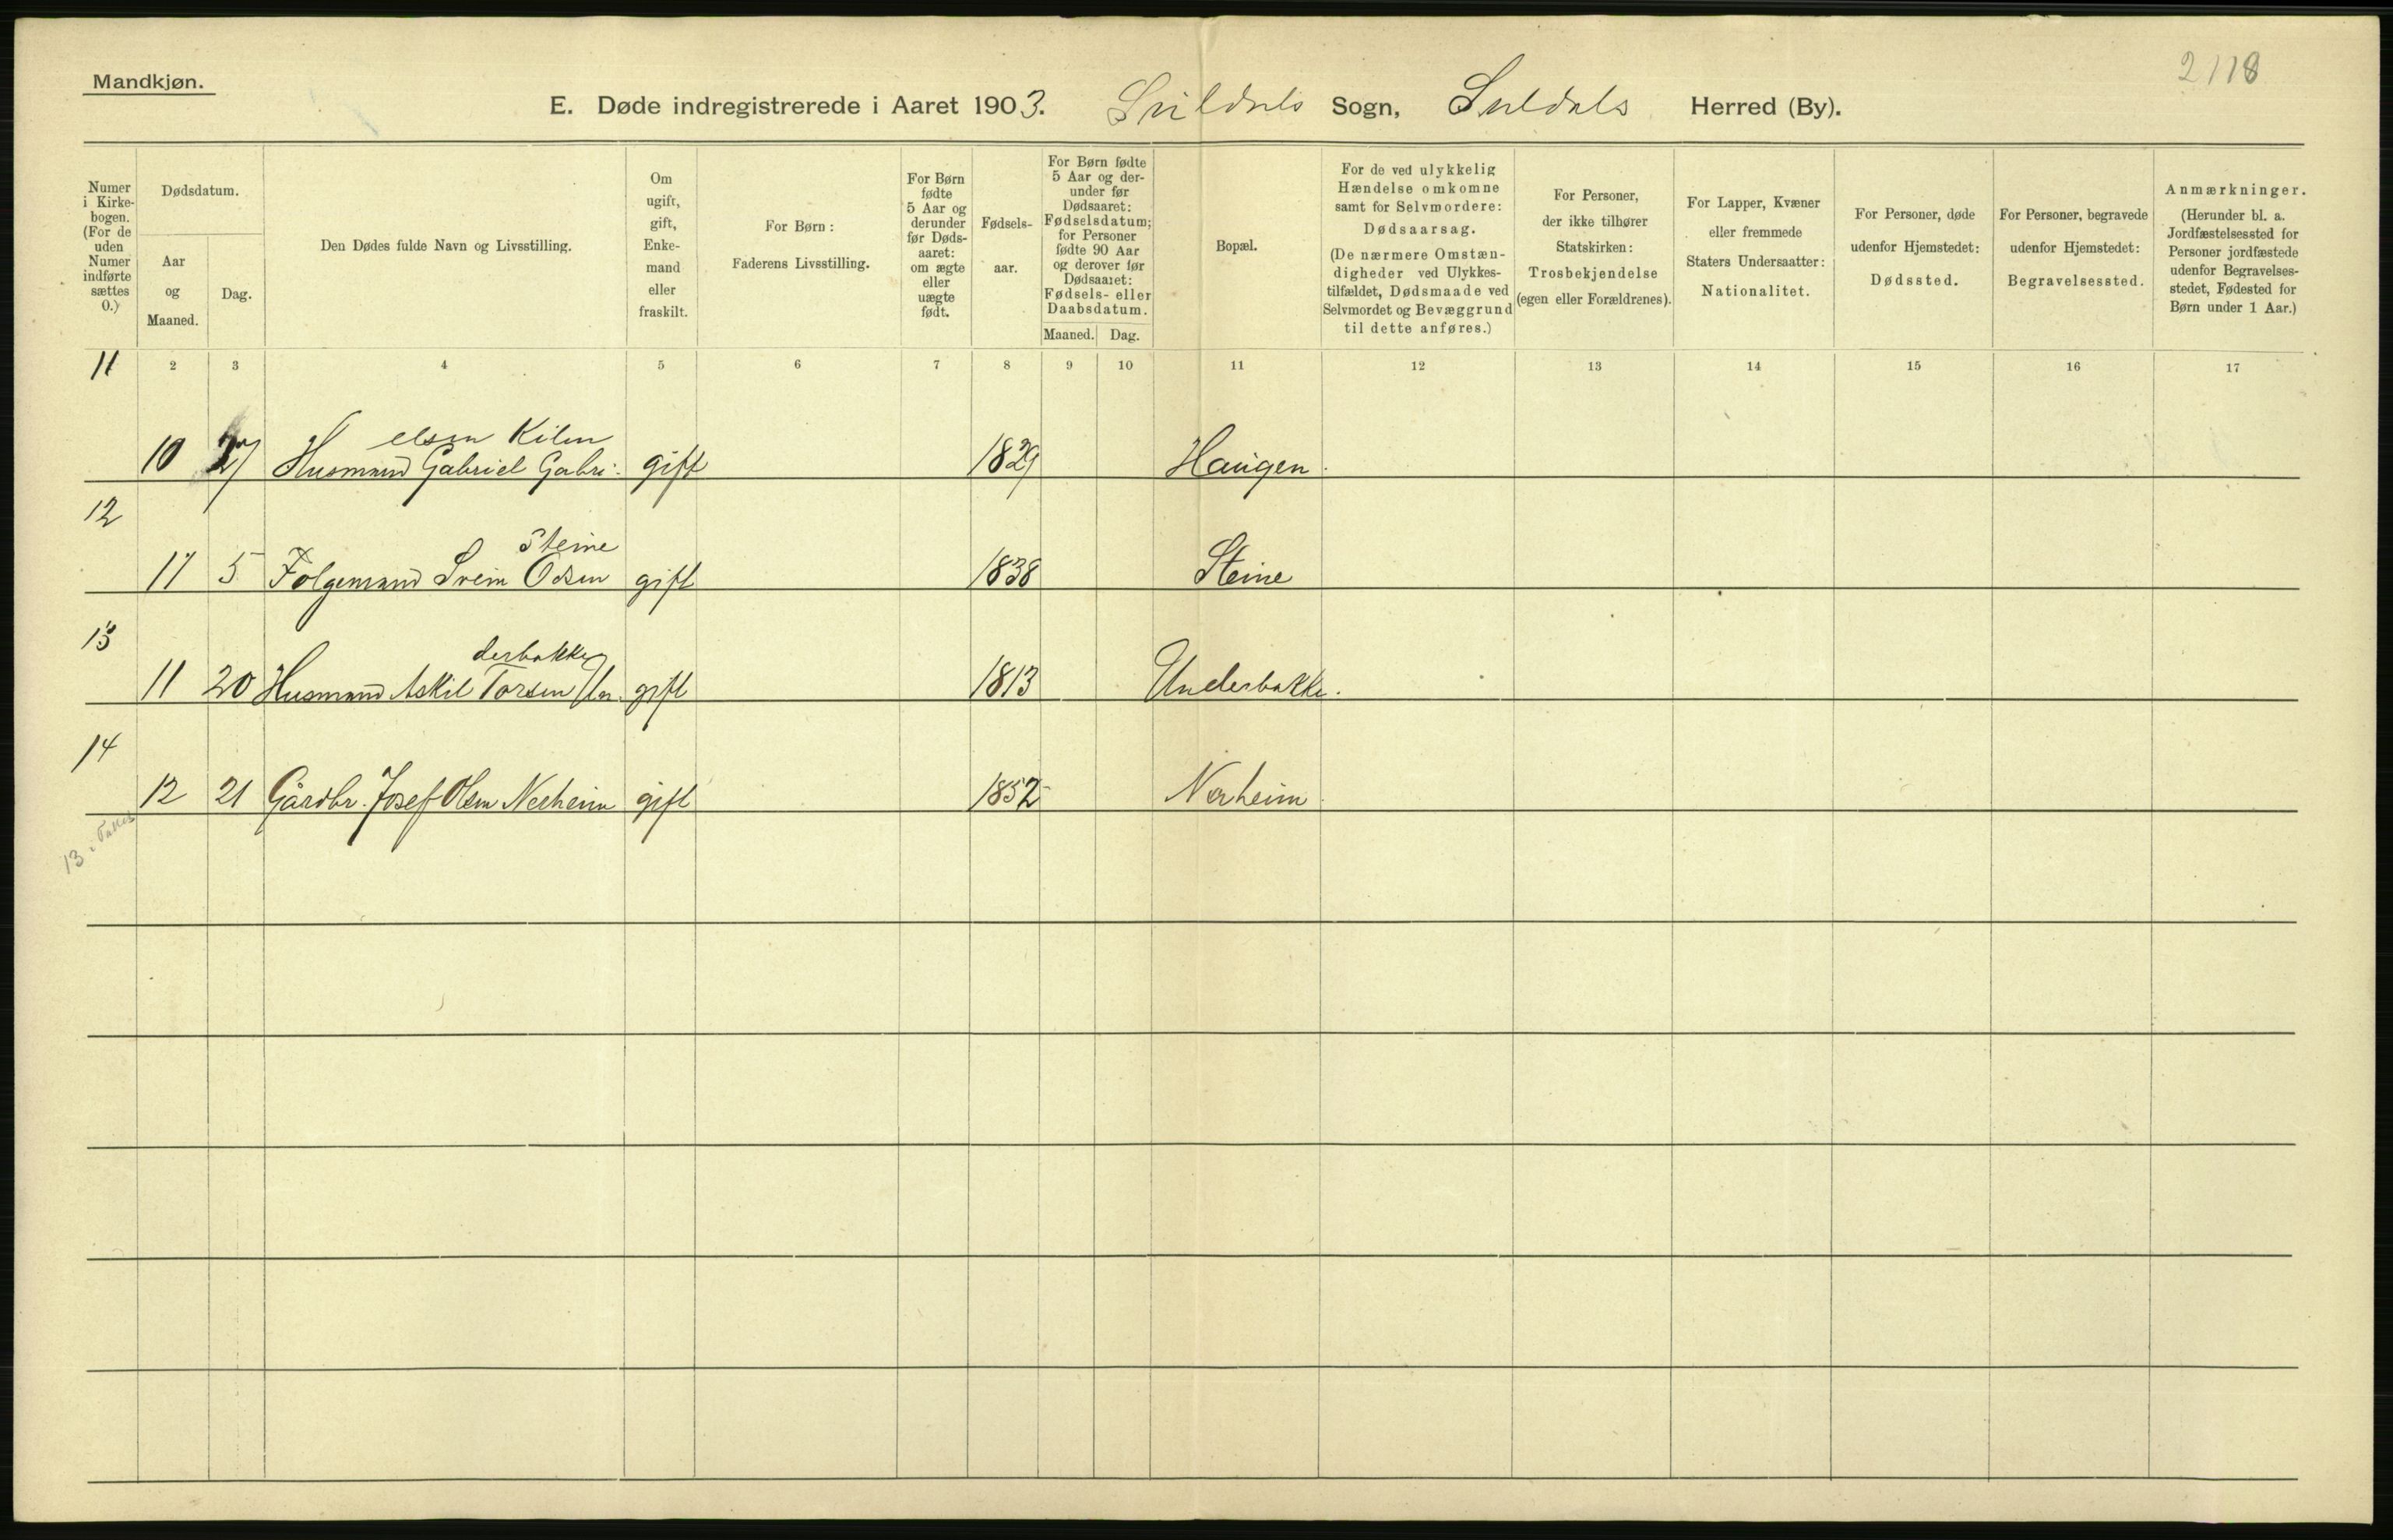 2118
Mandkjøn.
E. Døde indregistrerede i Aaret 1903. Suldals Sogn, Suldals Herred (By).
Numer i Kirke-bogen. (For de uden Numer indførte sættes 0.)
Dødsdatum.
Aar og Maaned.
Dag.
Den Dødes fulde Navn og Livsstilling.
Om ugift, gift, Enke-mand eller fraskilt.
For Børn: Faderens Livsstilling.
For Børn fødte 5 Aar og derunder før Døds-aaret: om ægte eller uægte født.
Fødsels-aar.
For Børn fødte 5 Aar og der-under før Dødsaaret: Fødselsdatum; for Personer fødte 90 Aar og derover før Dødsaaret: Fødsels- eller Daabsdatum.
Maaned. Dag.
Bopæl.
For de ved ulykkelig Hændelse omkomne samt for Selvmordere: Dødsaarsag. (De nærmere Omstæn-digheder ved Ulykkes-tilfældet, Dødsmaade ved Selvmordet og Bevæggrund til dette anføres.)
For Personer, der ikke tilhører Statskirken: Trosbekjendelse (egen eller Forældrenes).
For Lapper, Kvæner eller fremmede Staters Undersaatter: Nationalitet.
For Personer, døde udenfor Hjemstedet: Dødssted.
For Personer, begravede udenfor Hjemstedet: Begravelsessted.
Anmærkninger. (Herunder bl. a. Jordfæstelsessted for Personer jordfæstede udenfor Begravelses-stedet, Fødested for Børn under 1 Aar.)
11 2 3 4 5 6 7 8 9 10 11 12 13 14 15 16 17
elsen Kilen
10 27 Husmand Gabriel Gabri- gift 1829 Haugen.
12
Steine
11 5 Folgemand Svein Odsen gift 1838 Steine
13
derbakke
11 20 Husmand Askil Torsen Un- gift 1813 Underbakke.
14
12 21 Gårdbr. Josef Olsen Nerheim gift 1852 Nerheim.
13